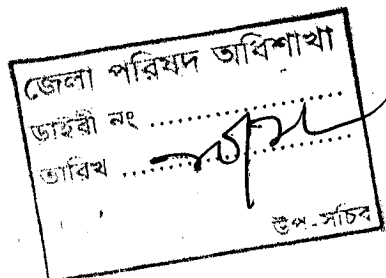 জেলা পরিষদ অধিশাখা
ডাইরী নং ....................
তারিখ ....................
উপ-সচিব